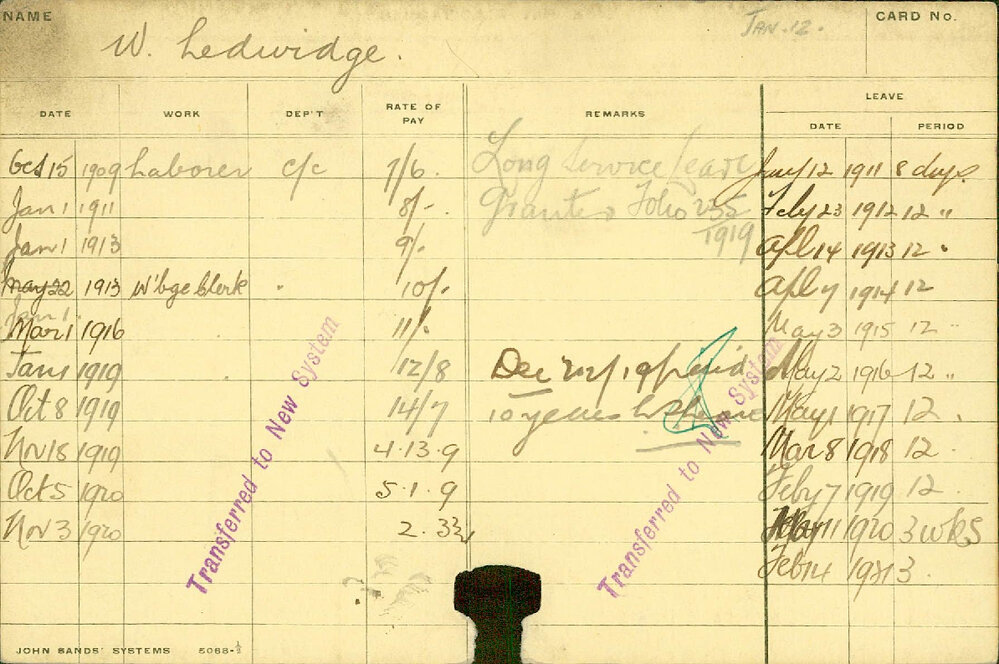 NAME
JAN. 12.
CARD No.
W. Ledwidge.
DATE WORK DEP'T RATE OF PAY REMARKS LEAVE
DATE PERIOD
Oct 15 1909 Laborer c/c 7/6. Long Service Leave Jany 12 1911 8 days
Jan 1 1911 8/-. Granted Folio 235 Feby 23 1912 12 "
Jan 1 1913 9/- 1919 Apl 14 1913 12 "
May 22 1913 W'hge Clerk " 10/- Apl 7 1914 12
Jan 1
Mar 1 1916 11/- May 3 1915 12 "
Jan 1 1919 12/8 Dec 22/19 paid May 2 1916 12 "
Oct 8 1919 14/7 10 years May 1 1917 12 .
Nov 18 1919 4.13.9 Mar 8 1918 12 .
Oct 5 1920 5.1.9 Feby 7 1919 12 .
Nov 3 1920 2.3¾ 11 1920 3 wks
Feb 14 1921 3.
Transferred to New System
Transferred to New System
JOHN SANDS' SYSTEMS 5088-½